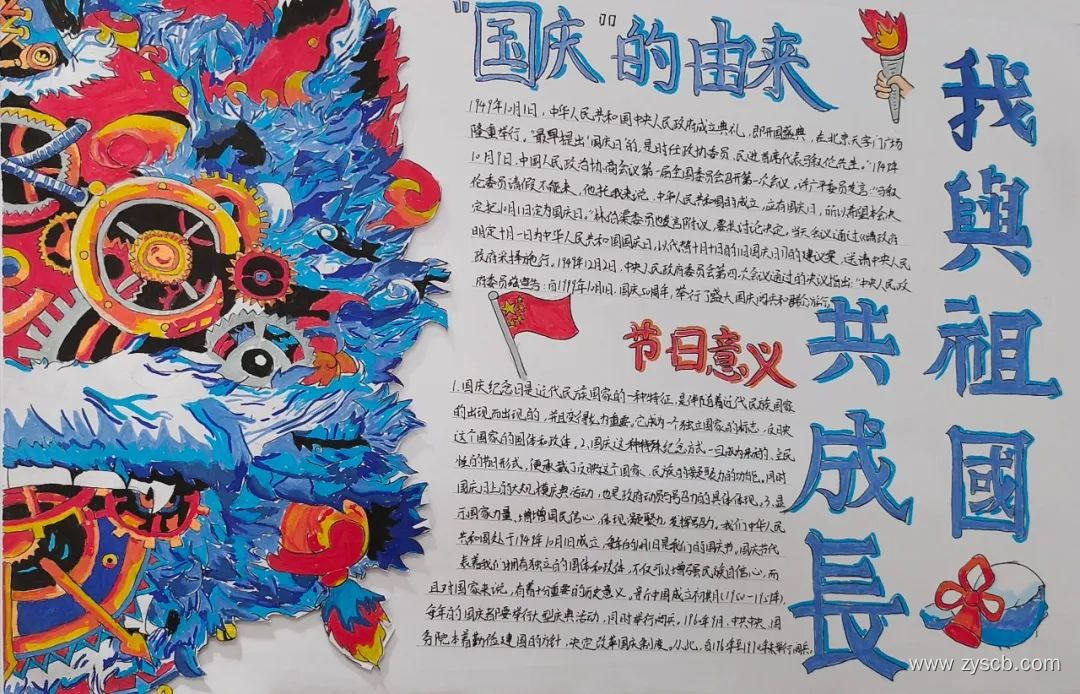 "国庆"的由来
1949年10月1日,中华人民共和国中央人民政府成立典礼,即开国盛典,在北京天安门广场
隆重举行。"最早提出'国庆日'的,是时任政协委员、民进首席代表马叙伦先生。"1949年
10月9日,中国人民政治协商会议第一届全国委员会召开第一次会议。许广平委员发言:"马叙
伦委员请假不能来,他托我来说,中华人民共和国的成立,应有国庆日,所以希望本会决
定把10月1日定为国庆日。"林伯渠委员也发言附议,要求讨论决定。当天会议通过《请政府
明定十月一日为中华人民共和国国庆日,以代替十月十日的旧国庆日》的建议案,送请中央人民
政府采择施行。1949年12月2日,中央人民政府委员会第四次会议通过的决议指出:"中央人民政
府委员会宣告:自1999年10月1日,国庆50周年,举行了盛大国庆阅兵和群众游行。
节日意义
1.国庆纪念日是近代民族国家的一种特征,是伴随着近代民族国家
的出现而出现的,并且变得尤为重要。它成为一个独立国家的标志,反映
这个国家的国体和政体。2.国庆这种特殊纪念方式一旦成为新的、全民
性的节日形式,便承载了反映这个国家、民族的凝聚力的功能。同时
国庆日上的大规模庆典活动,也是政府动员与号召力的具体体现。3.显
示国家力量、增强国民信心,体现凝聚力,发挥号召力。我们中华人民
共和国处于1949年10月1日成立,每年的10月1日是我们的国庆节。国庆节代
表着我们拥有独立的国体和政体,不仅可以增强民族自信心,而
且对国家来说,有着十分重要的历史意义。
每年的国庆都要举行大型庆典活动,同时举行阅兵。
务院本着勤俭建国的方针,决定改革国庆制度。
我與祖國
共成長
www.zyscb.com